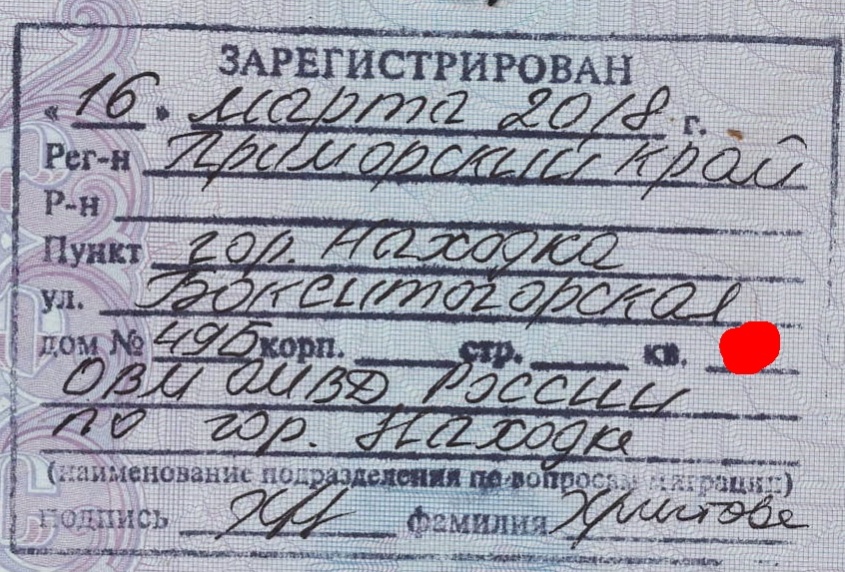 ЗАРЕГИСТРИРОВАН
« 16 » марта 2018 г.
Рег-н Приморский край
Р-н
Пункт гор. Находка
ул. Бокситогорская
дом № 49Б корп. стр. кв.
ОВМ ОМВД России
по гор. Находке
(наименование подразделения по вопросам миграции)
подпись фамилия